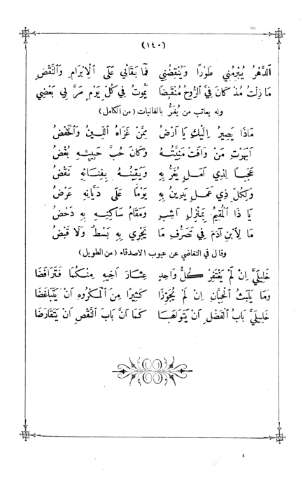 (١٤٠)
الدهر يبرمني طورا وينقضني فما بقائي على الإبرام والنقض
ما زلت مذ كان في الروح منقبضا يموت في كل يوم مر بي بعضي
وله يعاتب من يغر بالغانيات (من الكامل)
ماذا يصير إليك يا أرض ممن غذاه اللين والخفض
أبهرت من وافت منيته وكان حب حبيبه بغض
عجبا لذي أمل يغر به ويقينه بفنائه نقض
ولكل ذي عمل يدين به يوما على ديانه عرض
يا ذا المقيم بمنزل أشب ومقام ساكنه به دحض
ما لابن آدم في تصرف ما يجري به بسط ولا قبض
وقال في التغاضي عن عيوب الاصدقاء (من الطويل)
خليلي إن لم يغتفر كل واحد عثار أخيه منكما فترافضا
وما يلبث الحبان إن لم يجوزا كثيرا من المكروه أن يتباغضا
خليلي باب الفضل أن يتواهبا كما أن باب النقص أن يتقارضا